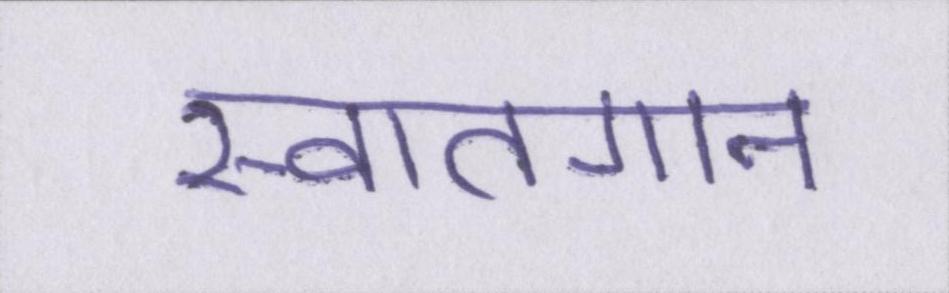 स्वातगान